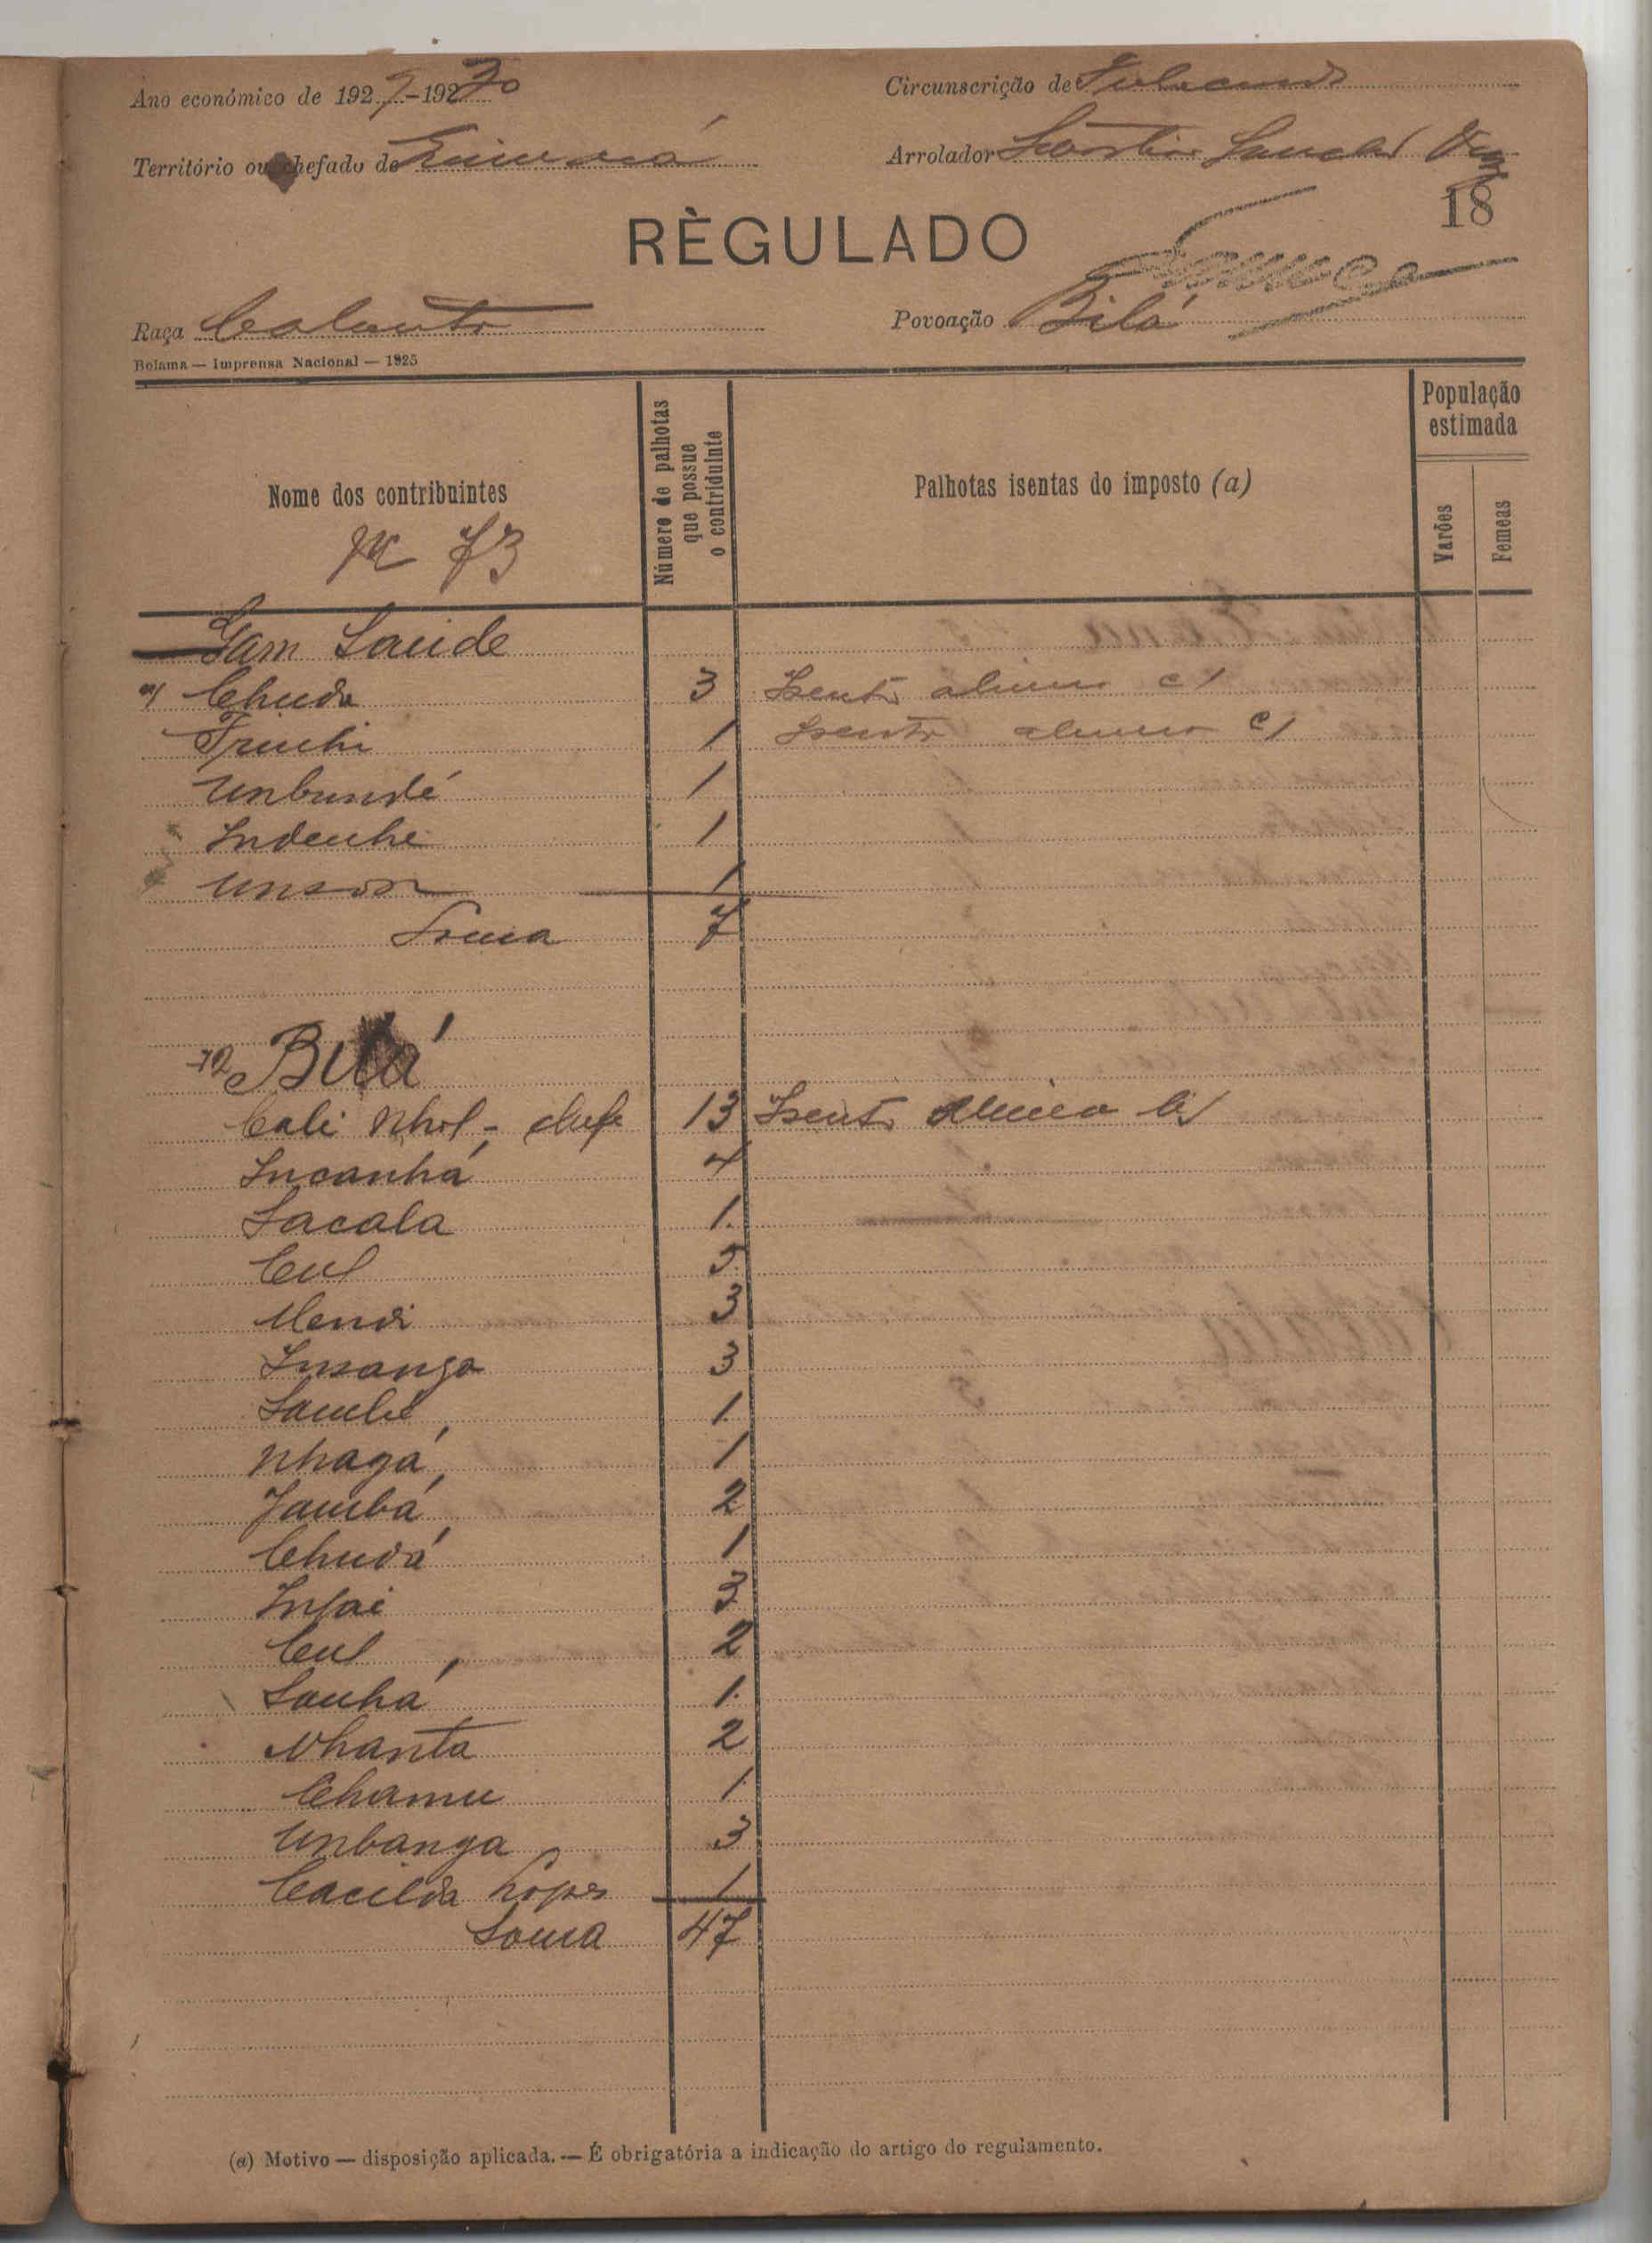 Ano económico de 1929-1930
Circunscrição de Fulacunda
Território ou chefado de
Arrolador Sanches Vaz
18
RÈGULADO
Raça Balanta
Povoação Bilá
Bolama — Imprensa Nacional — 1925
Nome dos contribuintes
Número de palhotas que possue o contriduinte
Palhotas isentas do imposto (a)
População estimada
Varões
Femeas
73
Gam Saúde
a) Chuda 3 Isento alinea c)
1 Isento alinea c)
Unbundé 1
Indenhe 1
1
Soma 7
Bilá
Cali Nhol - chefe 13 Isento alinea b)
Incanhá 4
Sacala 1
Cul 5
Mendi 3
Insanga 3
Sambé 1
Nhagá 1
Jambá 2
Chudá 1
Infai 3
Cul 2
Sanhá 1
Nhanta 2
Chamu 1
Unbanga 3
Cacilda Lopes 1
Soma 47
(a) Motivo — disposição aplicada. — É obrigatória a indicação do artigo do regulamento.